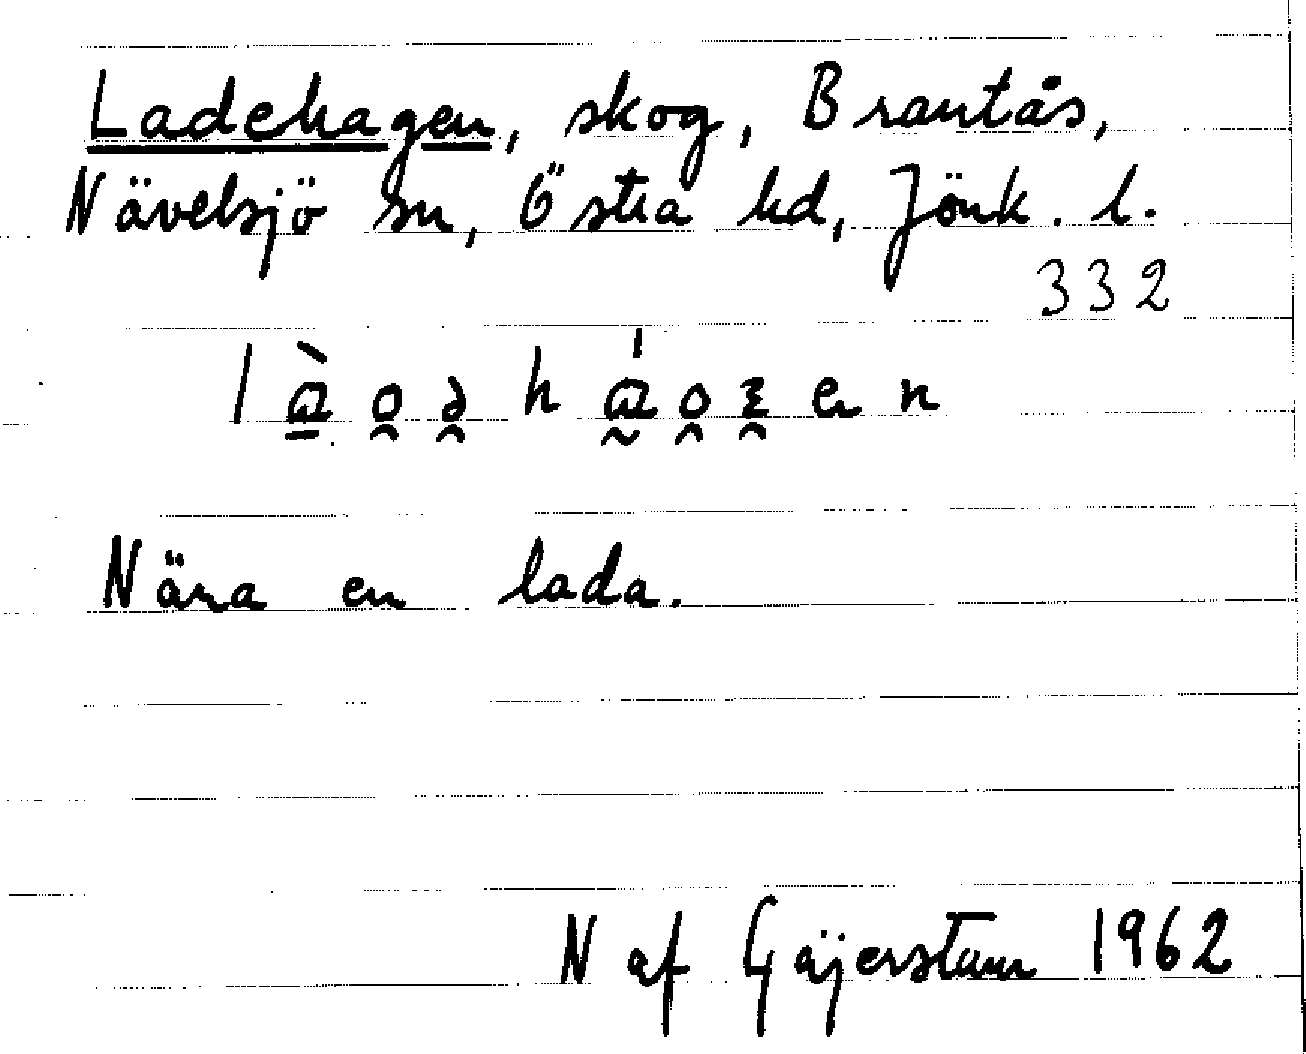 Ladehagen, skog, Brantås,
Nävelsjö sn, Östra hd, Jönk. l.
332
Nära en lada.
N af Gäjerstam 1962